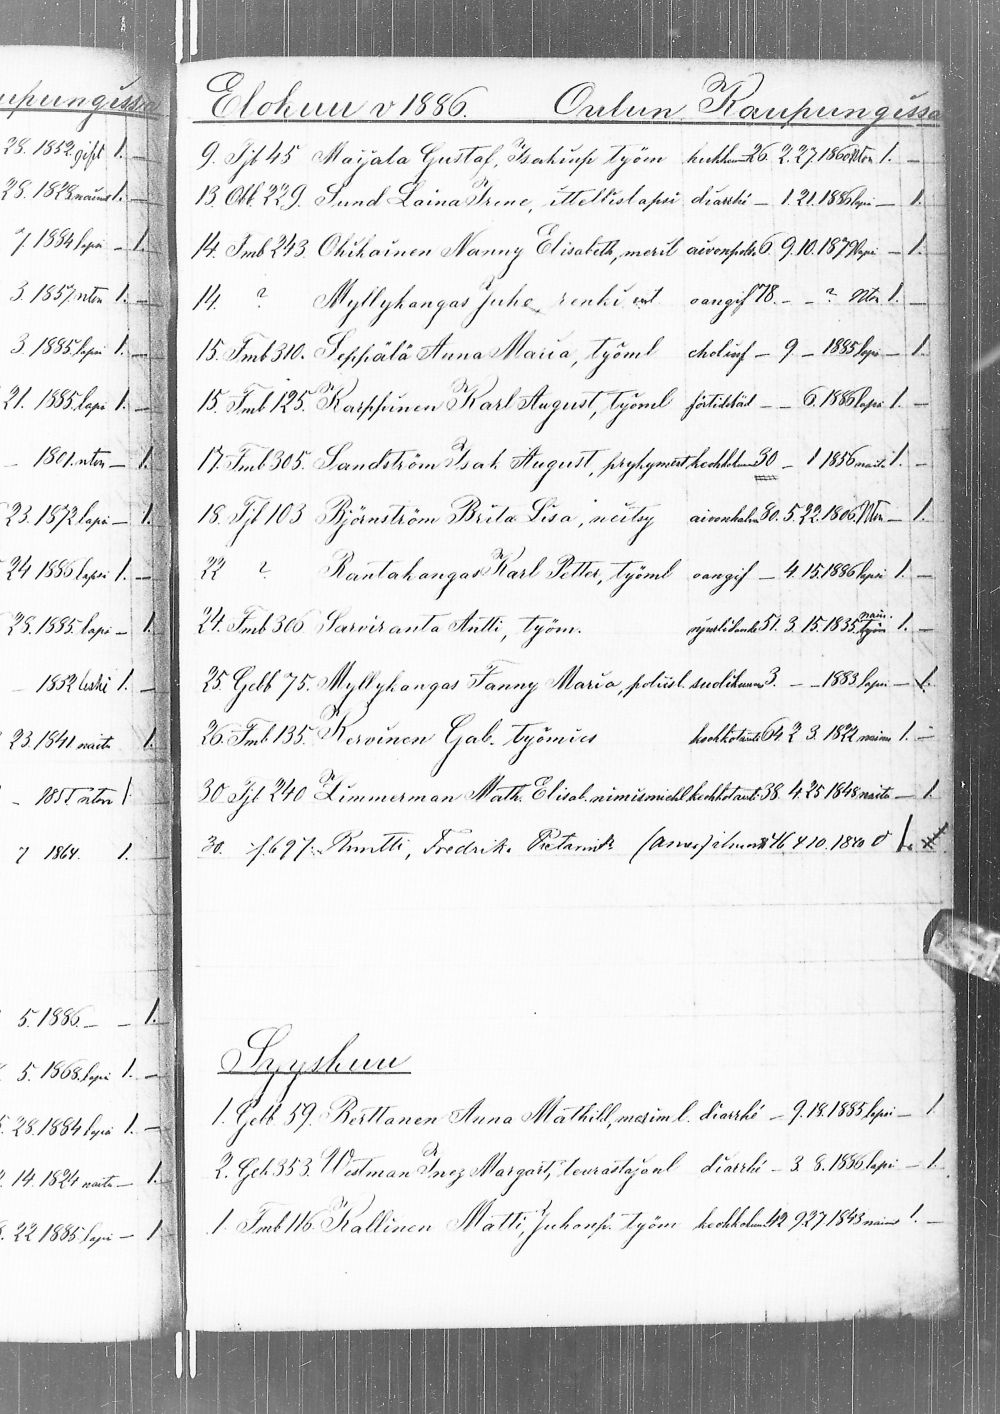 upungissa
28. 1852. gift 1. –
28. 1828 naim. 1. –
7. 1884 lapsi – 1.
3. 1857. ntön 1. –
3. 1885. lapsi 1. –
21. 1885. lapsi 1. –
– 1801. ntön – 1.
23. 1872 lapsi – 1.
24 1886 lapsi 1. –
28. 1885. lapsi – 1.
– 1852 leski 1. –
23. 1841 naitu 1.
7 1864. 1.
5. 1886. – – 1.
5. 1868. lapsi 1. –
28. 1884 lapsi 1. –
14. 1824 naitu – 1.
22 1885 lapsi – 1
Elokuu v 1886. Oulun Kaupungissa
9. Tjb 45 Maijala Gustaf, Isakinp työm hukkun 26. 2. 27. 1860 Ntön 1. –
13. Okb. 229. Sund Laina Irene, ittellislapsi diarrhé – 1. 21. 1886 lapsi – 1.
14. Tmb 243. Ohikainen Nanny Elisabeth, merit 6. 9. 10. 1879 lapsi – 1.
14. ? Myllykangas Juho, renki oangif 78. – – ? Ntön 1. –
15. Tmb 310. Seppälä Anna Maria, työml – 9 – 1885 lapsi – 1.
15. Tmb 125. Karppinen Karl August, työml förtidsböd – – 6. 1886 lapsi 1. –
17. Tmb 305. Sandström Isak August, keuhkokuum 30 – 1 1856 nait. 1. –
18. Tjb 103 Björnström Brita Lisa, neitsy 80. 5. 22. 1806. Ntön – 1.
22 ? Rantakangas Karl Petter, työml oangif – 4. 15. 1886 lapsi 1. –
24. Tmb 306 Sarviranta Antti, työm. 51. 3. 15. 1835 naim. 1. –
25. Gebb 75. Myllykangas Fanny Maria, poliisl. 3. – – 1883 lapsi – 1.
26. Tmb 135. Kervinen Gab. työmies keuhkotauti 64 2 3. 1822 naim 1. –
30. Tjb 240 Zimmerman Math. Elisab. nimismiehl keuhkotauti 38. 4. 25 1848 naitu – 1.
30. f. 697. Fredrika 46 4 10. 1840 1.
Syyskuu
1. Gebb. 59. Anna Mathild, merim l. diarrhé – 9. 18. 1885 lapsi – 1
2. Geb 353. Westman Inez Margart, teurastajanl diarrhé – 3. 8. 1886 lapsi – 1.
1. Tmb 116. Kallinen Matti, Juhonp. työm keuhkokuum 42 9 27 1843 naim 1. –